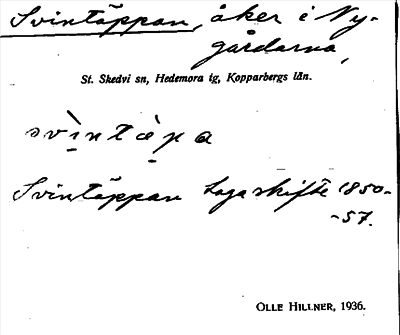 Svintäppan, åker i Ny-
gårdarna,
St. Skedvi sn, Hedemora tg, Kopparbergs län.
svìntàpa
Svintäppan Lagaskifte 1850-
-57.
OLLE HILLNER, 1936.